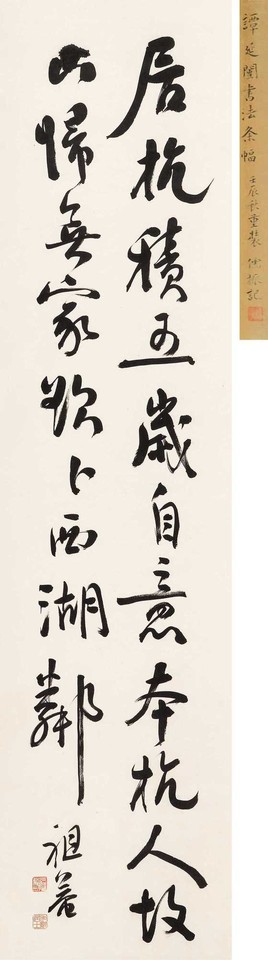 居杭積五歲自意本杭人故
山歸無家欲卜西湖鄰
祖菴
譚延闓書法條幅 壬辰秋重裝